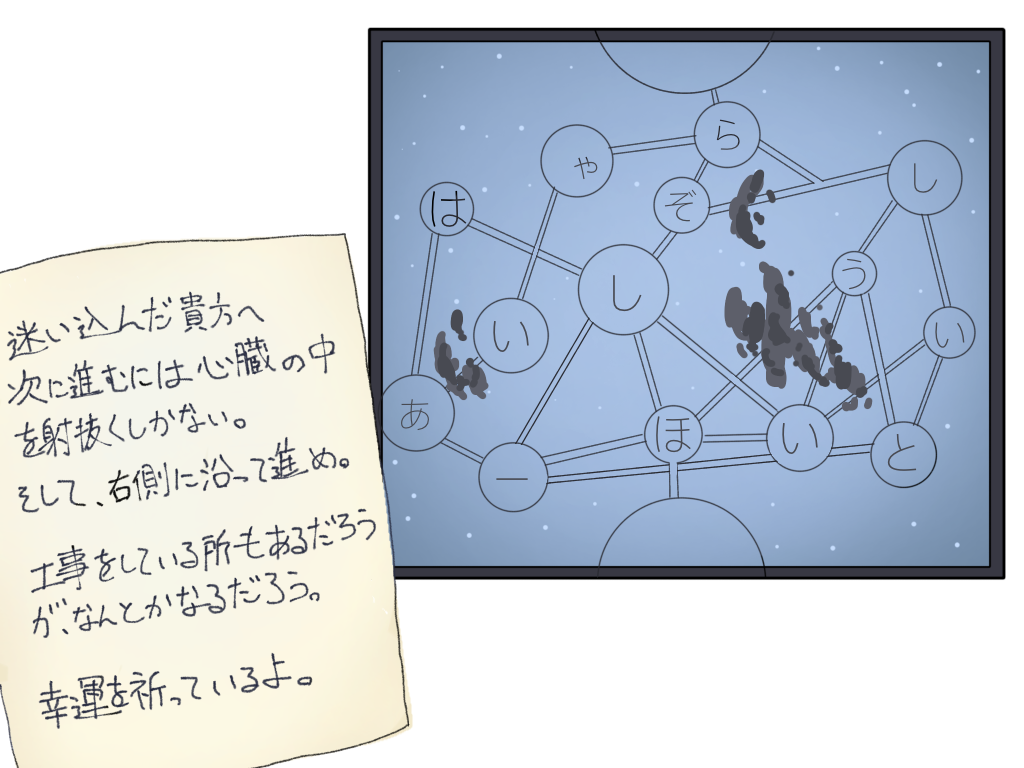 迷い込んだ貴方へ
次に進むには心臓の中
を射抜くしかない。
そして、右側に沿って進め。
工事をしている所もあるだろう
が、なんとかなるだろう。
幸運を祈っているよ。
ら
ゃ
し
は
ぞ
う
し
い
い
あ
ほ
い
と
ー